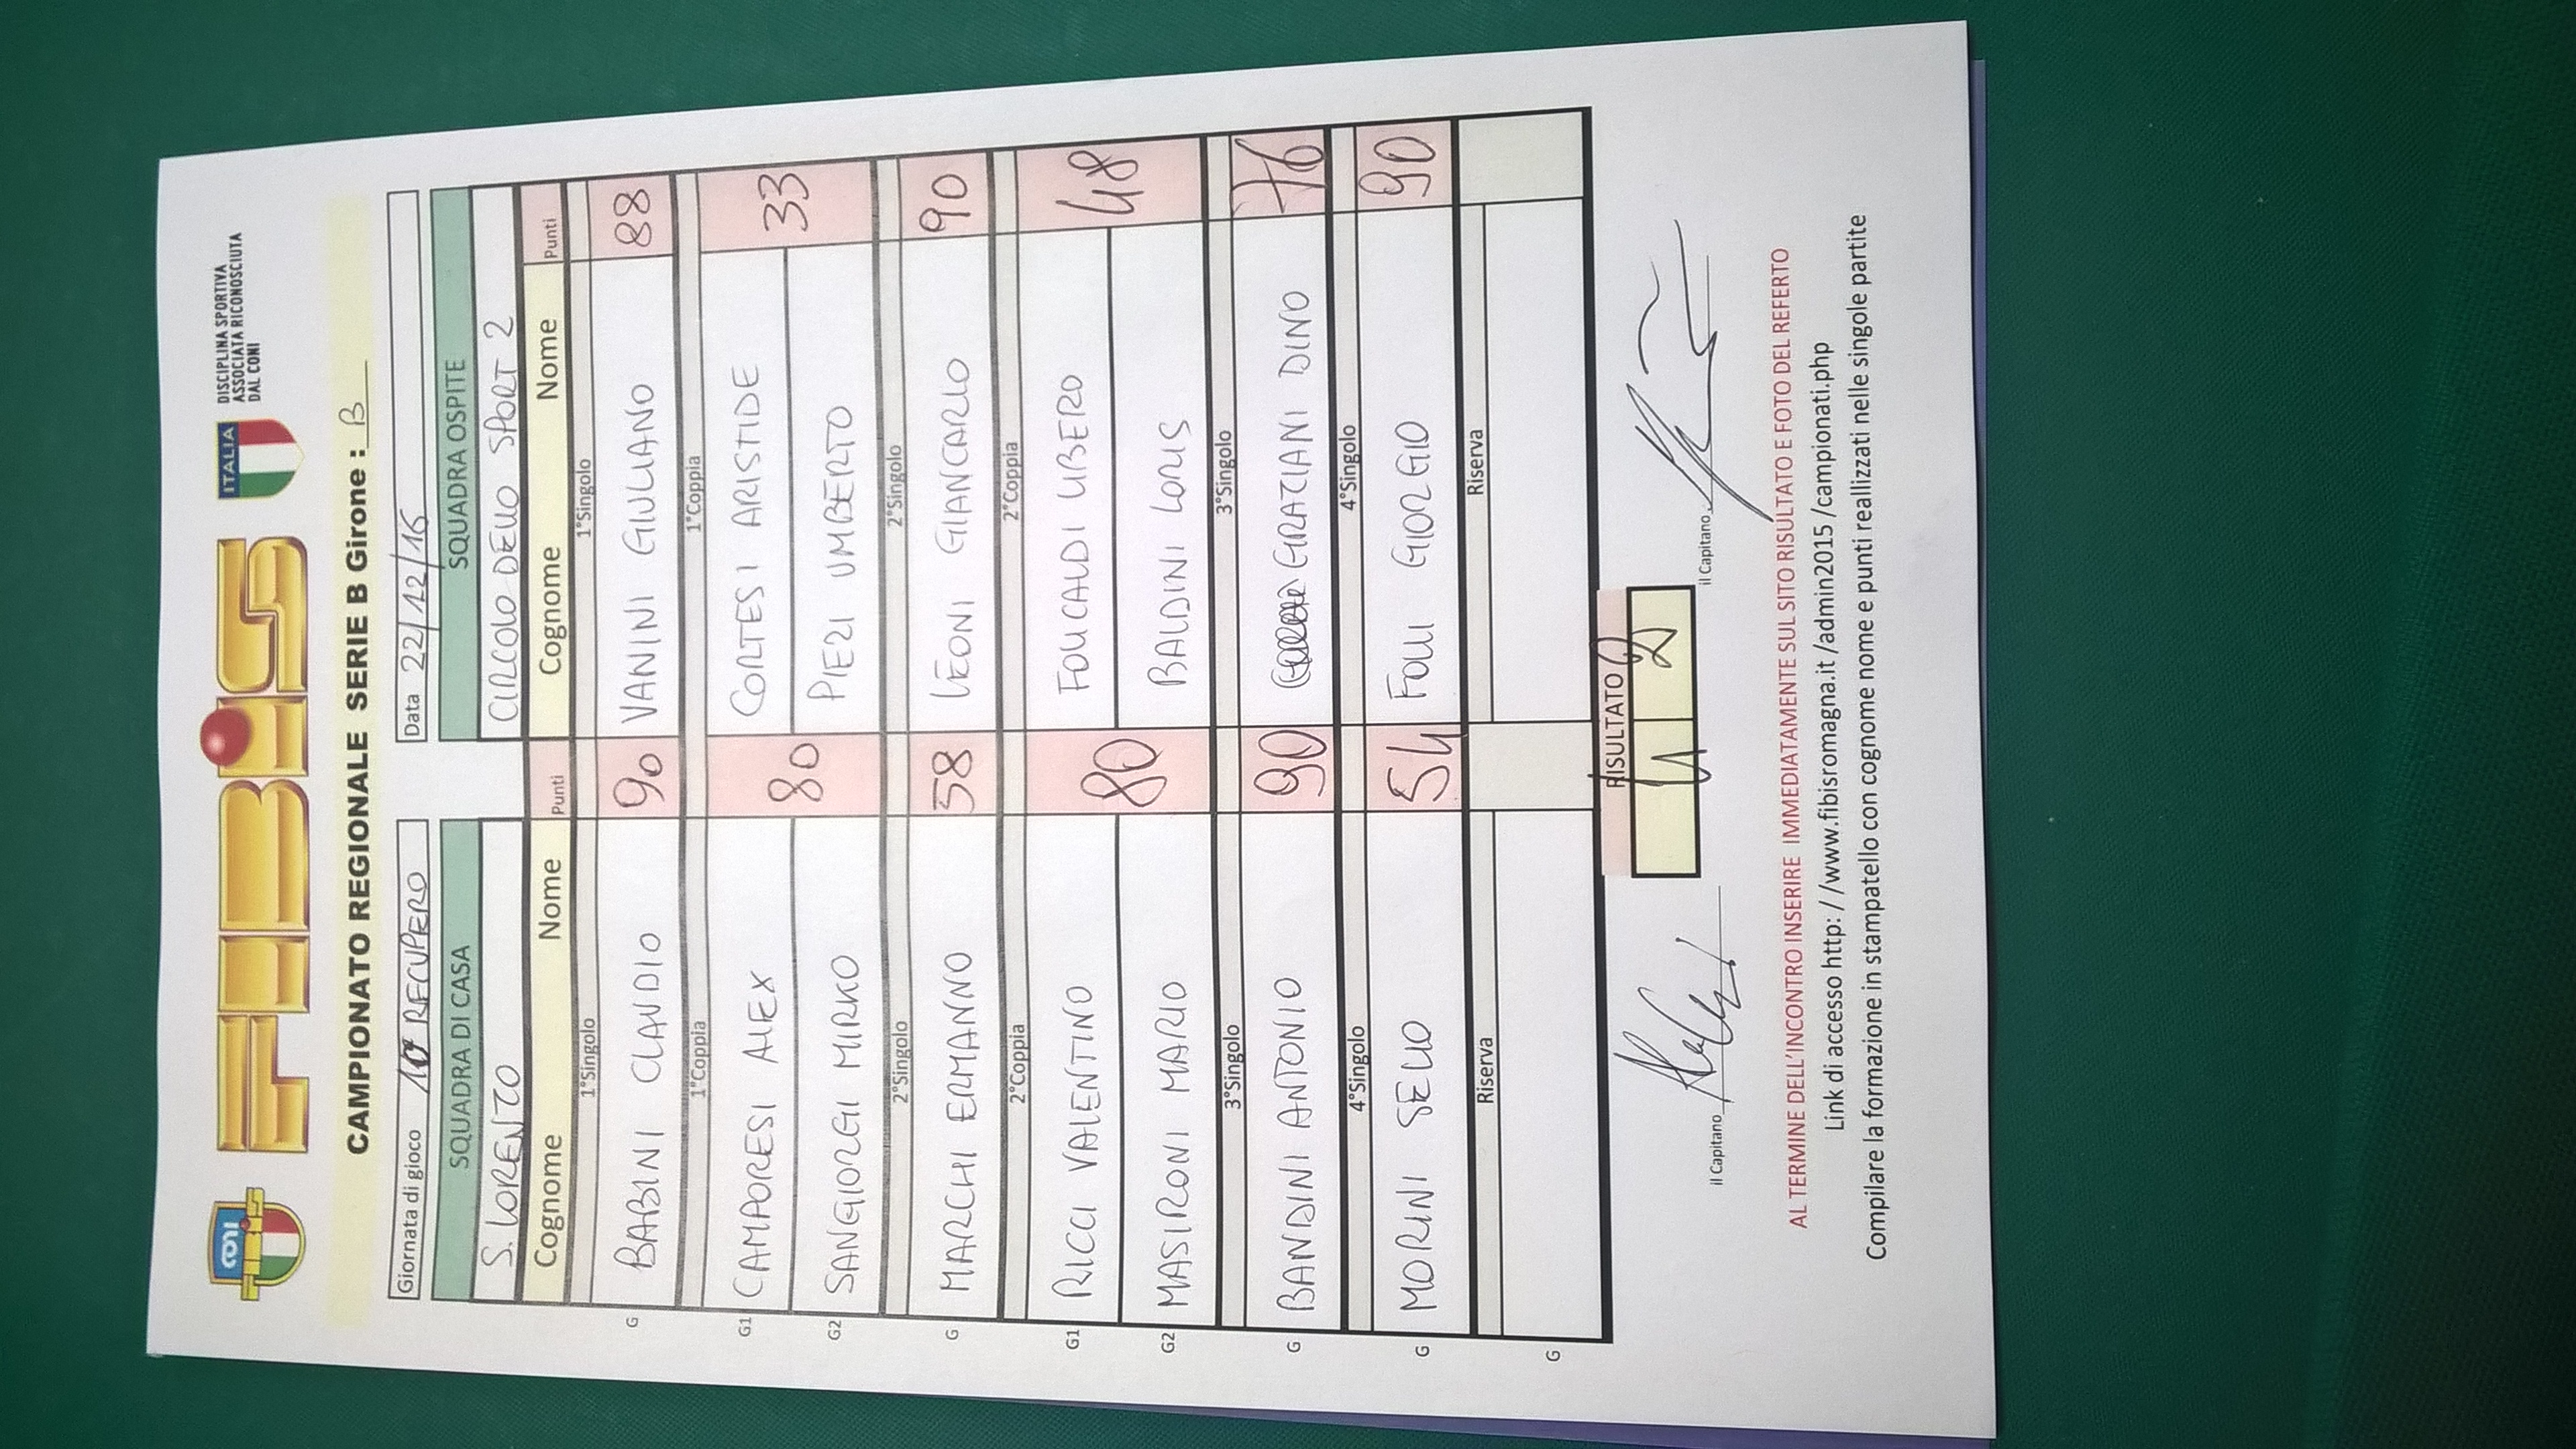 CONI
FIBiS
ITALIA
DISCIPLINA SPORTIVA
ASSOCIATA RICONOSCIUTA
DAL CONI
CAMPIONATO REGIONALE SERIE B Girone : B
Giornata di gioco 10 RECUPERO Data 22/12/16
SQUADRA DI CASA SQUADRA OSPITE
S. LORENZO CIRCOLO DELLO SPORT 2
Cognome Nome Punti Cognome Nome Punti
1°Singolo 1°Singolo
G BABINI CLAUDIO 90 VANINI GIULIANO 88
1°Coppia 1°Coppia
G1 CAMPORESI ALEX 80 CORTESI ARISTIDE 33
G2 SANGIORGI MIRKO PIEZI UMBERTO
2°Singolo 2°Singolo
G MARCHI ERMANNO 58 LEONI GIANCARLO 90
2°Coppia 2°Coppia
G1 RICCI VALENTINO 80 FOLICALDI LIBERO 48
G2 MASIRONI MARIO BALDINI LORIS
3°Singolo 3°Singolo
G BANDINI ANTONIO 90 GRAZIANI DINO 76
4°Singolo 4°Singolo
G MORINI SELIO 54 FOLLI GIORGIO 90
Riserva Riserva
G
RISULTATO
4 2
il Capitano il Capitano
AL TERMINE DELL'INCONTRO INSERIRE IMMEDIATAMENTE SUL SITO RISULTATO E FOTO DEL REFERTO
Link di accesso http: / /www.fibisromagna.it /admin2015 /campionati.php
Compilare la formazione in stampatello con cognome nome e punti reallizzati nelle singole partite